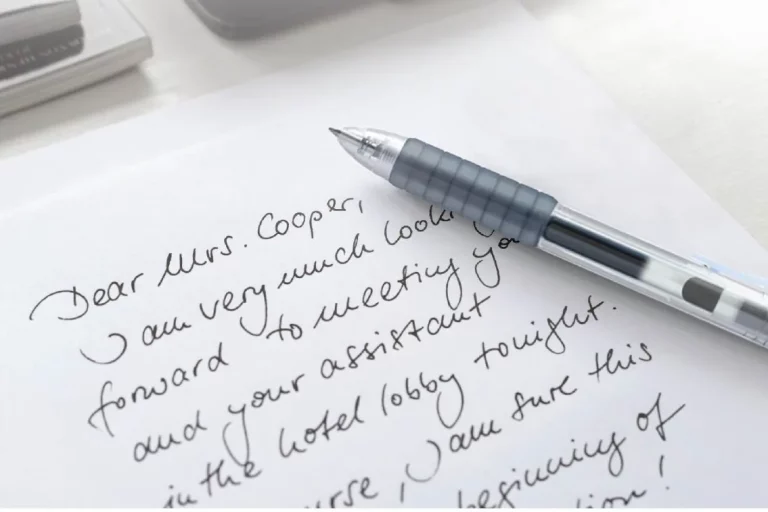 Dear Mrs. Cooper,
I am very much
forward to meeting
and your assistant
in the hotel lobby tonight.
I am sure this
beginning of